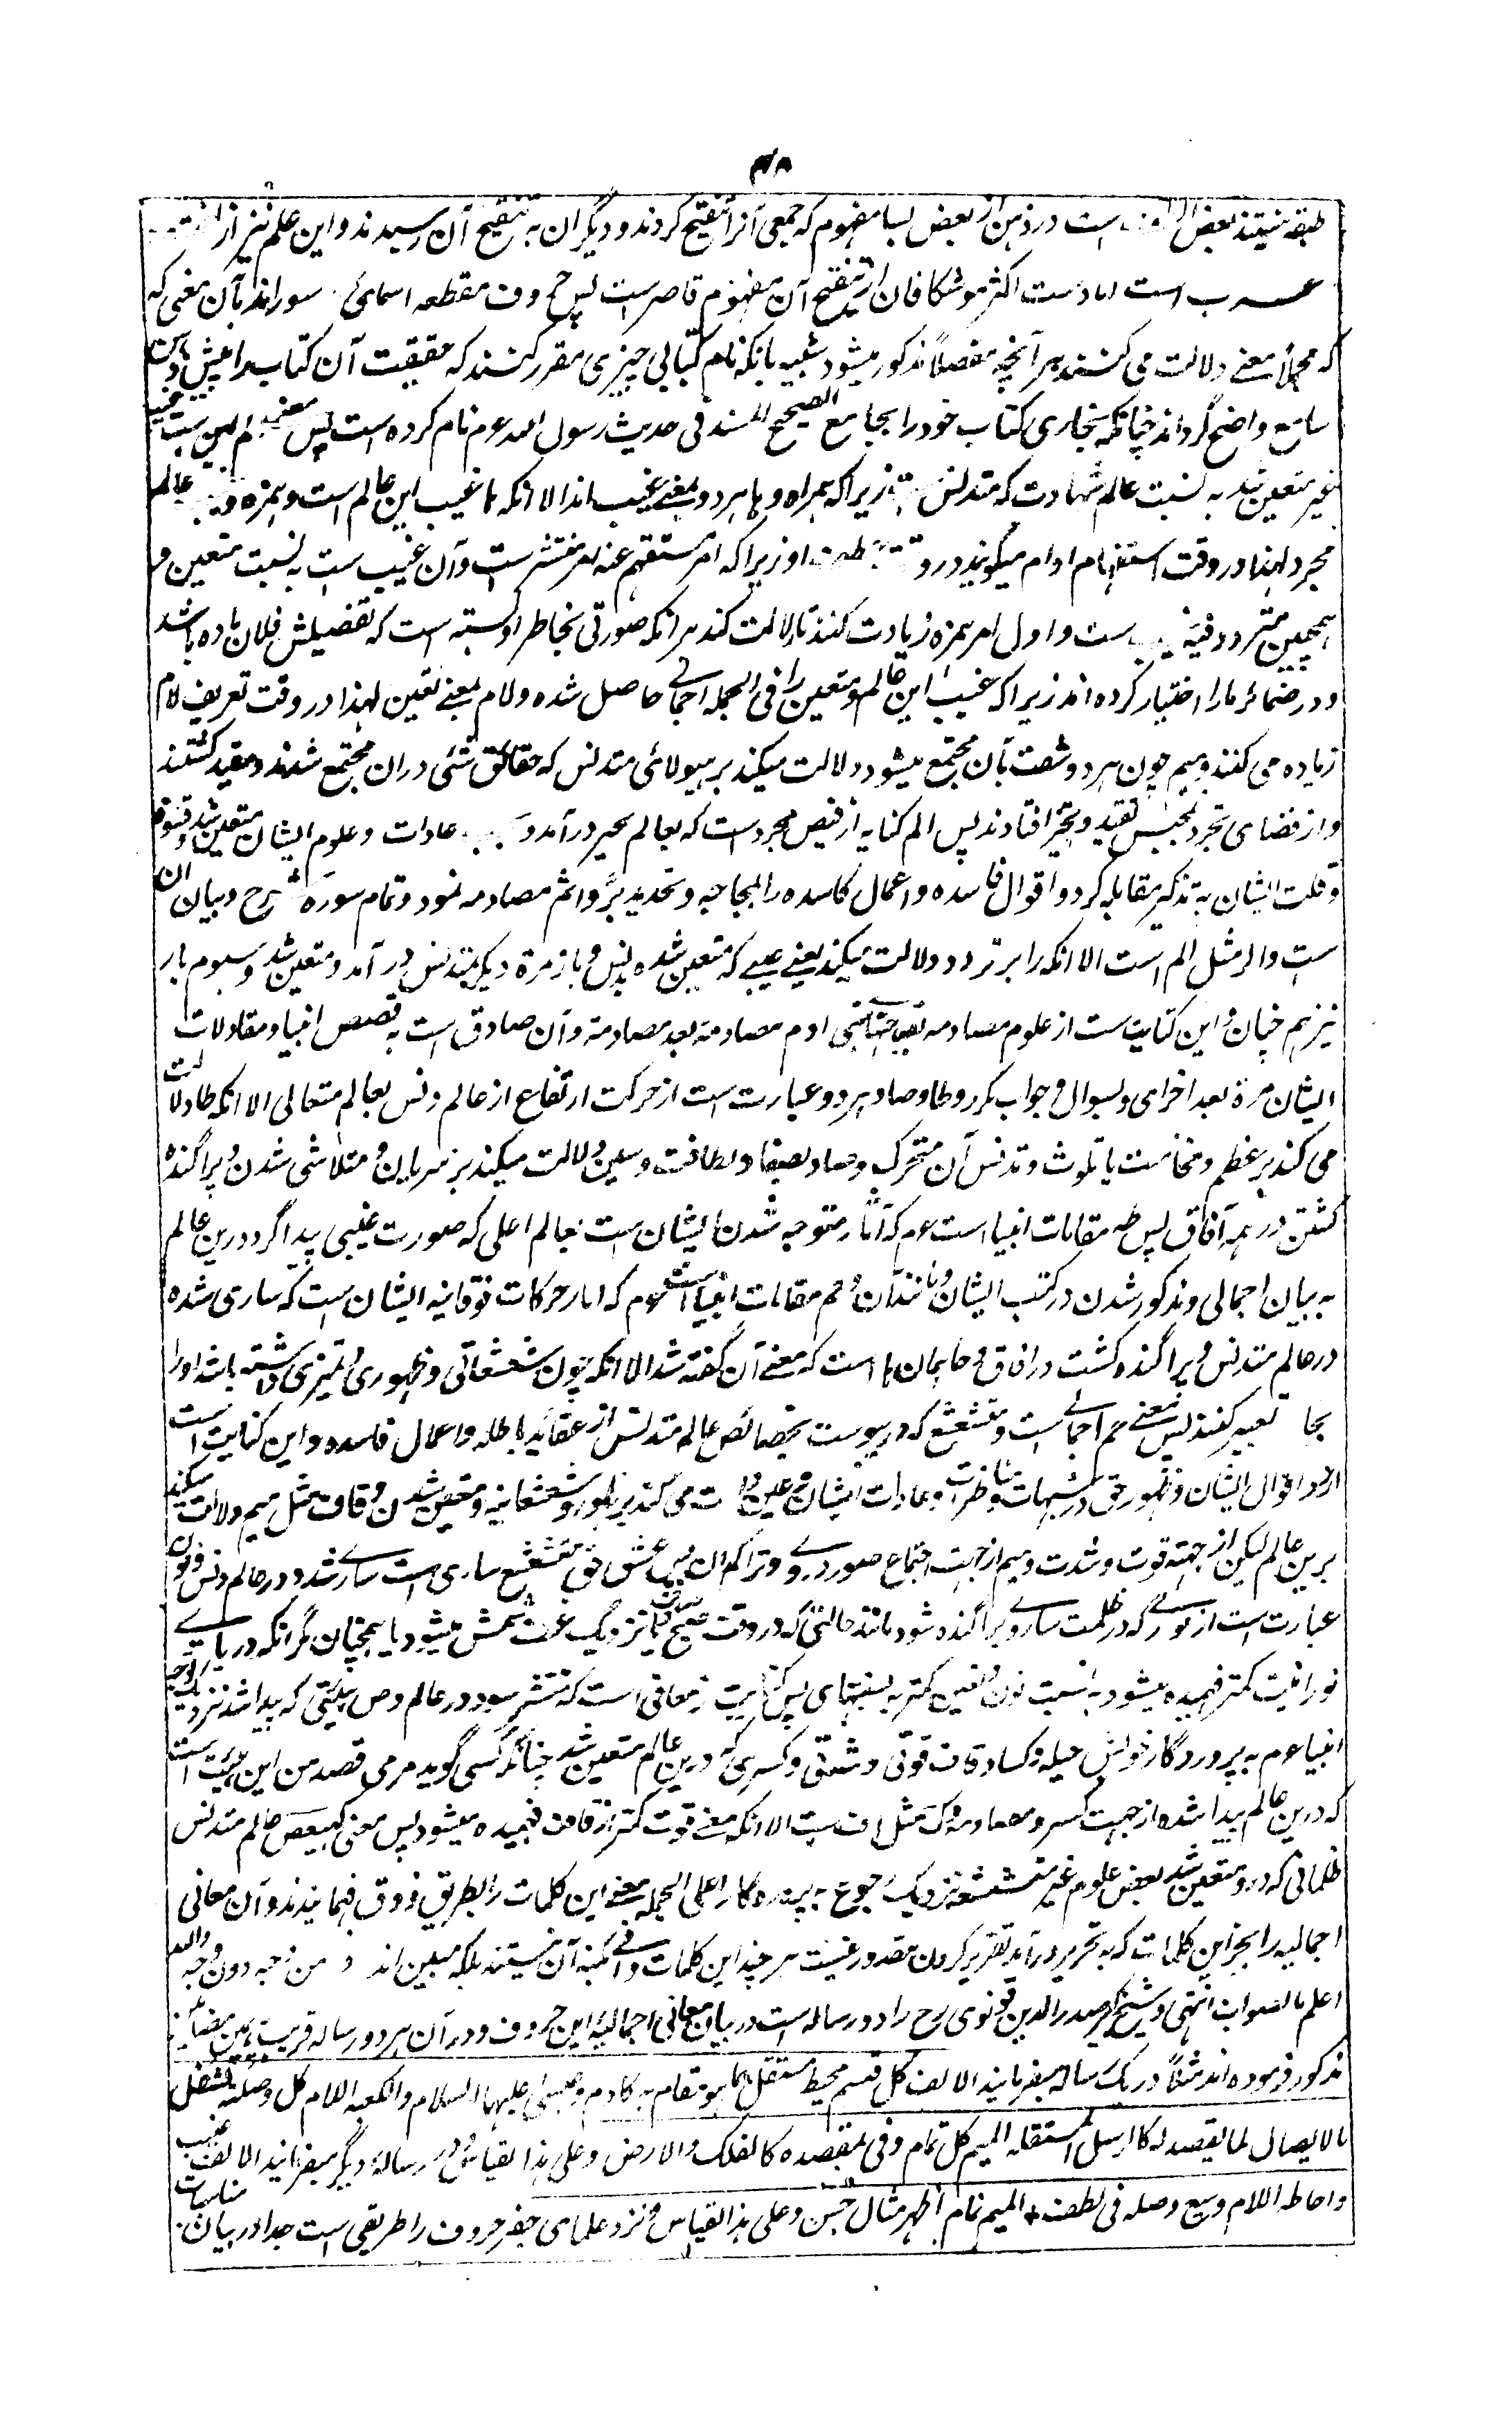 ۴۸
طبقه نیستند بعض است در ذهن از بعض بسا مفهوم که جمعی آنرا تنقیح کردند و دیگران به تنقیح آن رسیدند و این علم نیز از
عرب است اما دست اکثر موشکافان از تنقیح آن مفهوم قاصر است پس حروف مقطعه اسمائ سوراند بآن معنی که
که مجملاً بمعنے دلالت می کنند بر آنچه مفصلاً مذکور میشود شبیه بانکه نام کتابی چیزی مقرر کنند که حقیقت آن کتاب را پیش
سامع واضح گرداند چنانکه بخاری کتاب خود را بجامع الصحیح المسند فی حدیث رسول الله صوم نام کرده است پس معنے الم این ست غیب
غیر متعین شد به نسبت عالم شهادت که متدنس زیرا که همزه و ها هر دو بمعنے غیب اند الا انکه ها غیب این عالم است و همزه غیب عالم
مجرد لهذا در وقت استفهام ا و ام میگویند در وقت عطف او زیرا که امر مستفهم عنه امر منتشر ست وآن غیب ست به نسبت متعین و
همچنین متردد فیه غیب ست و اول امر همزه زیادت کنند تا دلالت کند بر انکه صورتی بخاطر او بسته است که تفصیلش فلان ماده باشد
و در ضمائر ها را اختیار کرده اند زیرا که غیب این عالم و متعین را فی الجمله اجمالے حاصل شده و لام بمعنے تعین لهذا در وقت تعریف لام
زیاده می کنند و میم چون هر دو شفت بآن مجتمع میشود دلالت میکند بر هیولائی متدنس که حقائق شتی دران مجتمع شدند و مقید گشتند
و از فضای تجرد بمحبس تقید و تحیز افتادند پس الم کنایه از فیض مجرد است که بعالم تحیز درآمد و عادات و علوم ایشان متعین شد و قسوة
وقلت ایشان به تذکیر مقابله کرد و اقوال فاسده و اعمال کاسده را بمحاجه و تحدید برّ و اثم مصادمه نمود و تمام سورة شرح و بیان ان
ست و الر مثل الم است الا انکه را بر تردد دلالت میکند یعنے غیبے که متعین شده بدنس و باز مرة دیگر بتدنس در آمد و متعین شد و سوم بار
نیز هم چنان و این کنایت ست از علوم مصادمه بقبائح بنی ادم مصادمة بعد مصادمة و آن صادق است به قصص انبیا و مقاولات
ایشان مرة بعد اخرای و بسوال و جواب مکرر و طا و صاد هر دو عبارت است از حرکت ارتفاع از عالم دنس بعالم متعالی الا انکه طا دلالت
می کند بر عظم و فخامت یا تلوث و تدنس آن متحرک و صاد بصفا و لطافت و سین دلالت میکند بر سریان و متلاشی شدن و پراگنده
گشتن در همه آفاق پس طه مقامات انبیا ست صوم که آثار متوجه شدن ایشان ست بعالم اعلی که صورت غیبی پیدا گردد درین عالم
به بیان اجمالی و مذکور شدن در کتب ایشان و مانند آن و طسم مقامات انبیا است صوم که اثار حرکات فوقانیه ایشان ست که ساری شده
در عالم متدنس و پراگنده گشت در افاق و حا بمان ها است که معنے آن گفته شد الا انکه چون شعشعانی و ظهوری و تمیزی داشته باشد اورا
بحا تعبیر کنند پس معنے حم اجمالے ست متشعشع که در پیوست بخصائص عالم متدنس از عقائد باطله و اعمال فاسده و این کنایت است
از رد اقوال ایشان و ظهور حق در شبهات و مناظرات و عادات ایشان و عین دلالت می کند بر ظهور و شعشعانیه و متعین شدن و قاف مثل میم دلالت میکند
برین عالم لیکن از جهة قوت و شدت و میم از جهت اجتماع صور درے و تراکم ان پس عسق حق متشعشع ساری است سارے شد در عالم دنس و نون
عبارت ست از نورے که در ظلمت سارے و پراگنده شود مانند حالتی که در وقت صبح صادق یا نزدیک غروب شمس میشود یا همچنان مگر انکه در یا
نورانیت کمتر فهمیده میشود به نسبت نون و تعین کمتر به نسبت های پس کنایت از معانی است که منتشر میشود در عالم و ص هیئتی که پیدا شد نزدیک توجه
انبیا عوم به پروردگار خواهش حیله و کساد قاف قوتی و شدتی و کسری که درین عالم متعین شد چنانکه کسی گوید مرمی قصد من این هیئت است
که درین عالم پیدا شده از جهت کسر و مصادمه و ک مثل قاف ست الا انکه معنے قوت کمتر از قاف فهمیده میشود پس معنی کهیعص عالم متدنس
ظلمانی که درو متعین شد بعض علوم غیر متشعشعه نزدیک رجوع به پروردگار اعلی الجمله معنے این کلمات را بطریق ذوق فهمانیدند و آن معانی
اجمالیه را بجز این کلمات که به تحریر در آمد تقریر کردن مقدور نیست هر چند این کلمات وافی بکنه آن نیستند بلکه مبین اند من وجه دون وجه والله
اعلم بالصواب انتهی و شیخ کبیر صدر الدین قونوی رح را دو رساله است در بیان معانی اجمالیۀ این حروف و در آن هر دو رساله قریب همین مضامین
مذکور فرموده اند مثلاً در یک رساله میفرمایند الالف کل قسم محیط مستقل بما هو مقام به کآدم و عیسی علیهما السلام والکعبه اللام کل وصلة منتقل
بالایصال لما یقصد له کالرسل المستقله المیم کل تمام وفی لمقصده کالفلک والارض و علی هذا القیاس در رسالۀ دیگر میفرمایند الالف غیب
واحاطه اللام وسیع وصله فی لطف المیم تمام اظهر مثال حسن و علی هذا القیاس و نزد علمای جفر حروف را طریقی ست جدا در بیان مناسبات